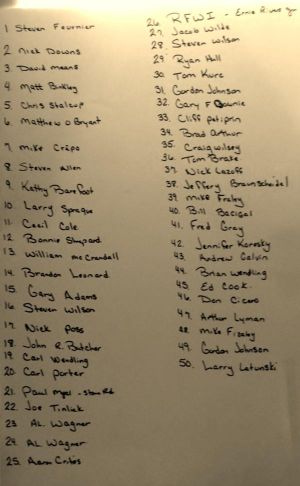 1 Steven Fournier
2 Nick Downs
3. David Means
4 Matt Binkley
5. Chris Stalcup
6 Matthew O Bryant
7 Mike Crapo
8 Steven Allen
9. Kathy Barefoot
10 Larry Sprague
11. Cecil Cole
12 Bonnie Shepard
13 William McCrandall
14 Brandon Leonard
15. Gary Adams
16 Steven Wilson
17 Nick Poss
18 John R. Butcher
19 Carl Wendling
20. Carl Porter
21. Paul
22. Joe Tinlick
23 AL. Wagner
24 AL. Wagner
25. Aaron
26. RFWI - Ernie
27. Jacob Wilde
28 Steven Wilson
29 Ryan Hall
30 Tom Kurc
31. Gordon Johnson
32. Gary F
33. Cliff Petiprin
34. Brad Arthur
35. Craig Wilsey
36. Tom Brake
37. Nick Lazoff
38. Jeffery Braunscheidel
39. Mike Fraley
40. Bill Bacigal
41. Fred Gray
42. Jennifer Koresky
43. Andrew Galvin
44 Brian Wendling
45. Ed Cook.
46. Don Cicero
47. Arthur Lyman
48. Mike
49. Gordon Johnson
50. Larry Letunski